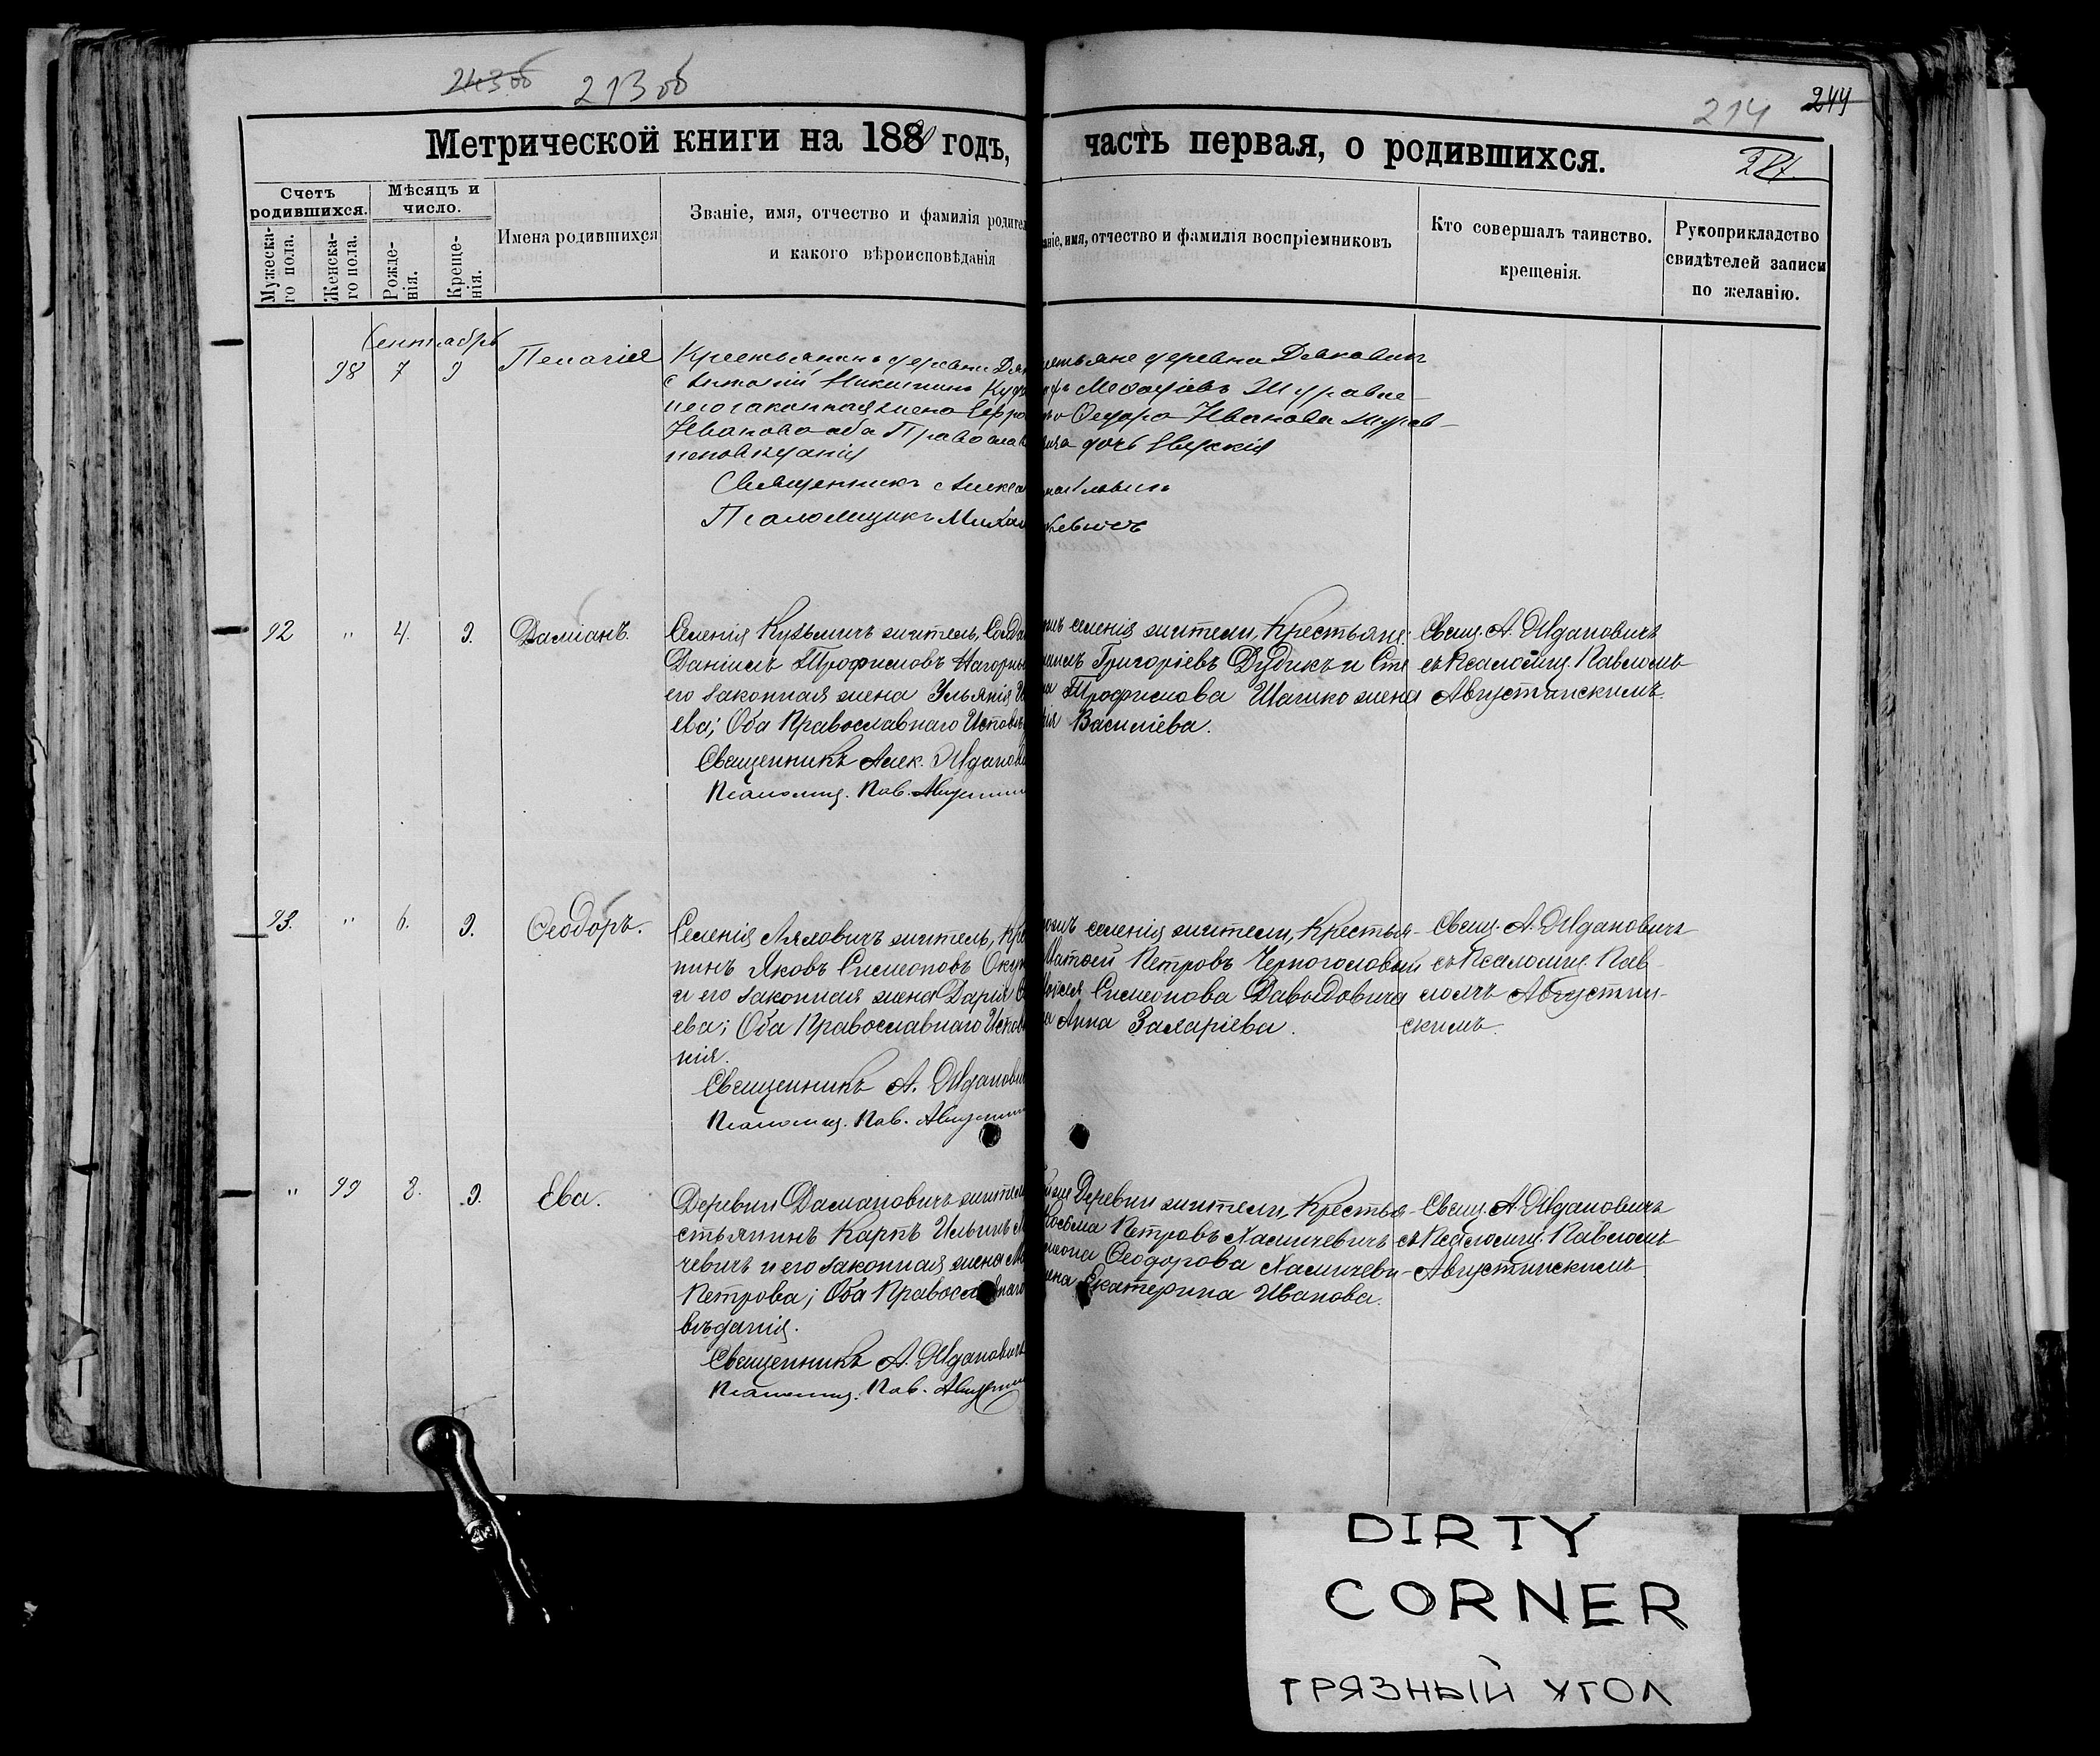 243 об 213 об
214 244
Метрической книги на 1880 годъ,
часть первая, о родившихся.
Счетъ родившихся.
Мѣсяцъ и число.
Мужескаго пола.
Женскаго пола.
Рожденія.
Крещенія.
Имена родившихся
Званіе, имя, отчество и фамилія родител
и какого вѣроисповѣданія
аніе, имя, отчество и фамилія воспріемниковъ
Кто совершалъ таинство.
крещенія.
Рукоприкладство
свидѣтелей записи
по желанію.
Сентябрь
98 7 9 Пелагія
Крестьянинъ деревни Дяк
Антоній Никитинъ Куд
и его законная жена Евфро
Иванова оба Православ
исповѣданія
Священникъ Алекса
Псаломщикъ Михаи
стьяне деревни Дякович
Ѳедора Иванова журав
дочь Евдокія
92 " 4. 9. Даміанъ.
Селенія Кузьмичъ житель, Солда
Даніилъ Трофимовъ Нагорны
его законная жена Ульянія И
ева; Оба Православнаго Исповѣ
Священникъ Алек. Ждано
Псаломщ. Пав. Августин
селенія жители, Крестьяне:
Григоріевъ Дудикъ и Сте
на Трофимова Шашко жена
Василіева.
Свящ. А. Ждановичъ
съ Псаломщ. Павломъ
Августинскимъ.
93. " 6. 9. Ѳеодоръ.
Селенія Ляховичъ житель, Кре
нинъ Яковъ Симеоновъ Окун
и его законная жена Дарія
ева; Оба Православнаго Испов
нія.
Священникъ А. Жданови
Псаломщ. Пав. Августин
селенія жители, Крестья-
Матѳей Петровъ Черноголовый
Симеонова Давыдовича
а Анна Захаріева.
Свящ. А. Ждановичъ
съ Псаломщ. Пав-
ломъ Августин-
скимъ.
" 99 8. 9. Ева.
Деревни Даманович жител
стьянинъ Карпъ Ильинъ
чевичъ и его законная жена
Петрова; Оба Православнаго
вѣданія.
Священникъ А. Ждановичъ
Псаломщ. Пав. Августин
Деревни жители, Крестья-
Косьма Петровъ Халичевичъ
Ѳеодорова Халичеви-
жена Екатерина Иванова.
Свящ. А. Ждановичъ
съ Псаломщ. Павломъ
Августинскимъ
DIRTY
CORNER
ГРЯЗНЫЙ УГОЛ